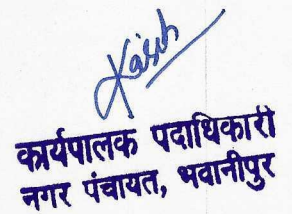 Kasih
कार्यपालक पदाधिकारी
नगर पंचायत, भवानीपुर